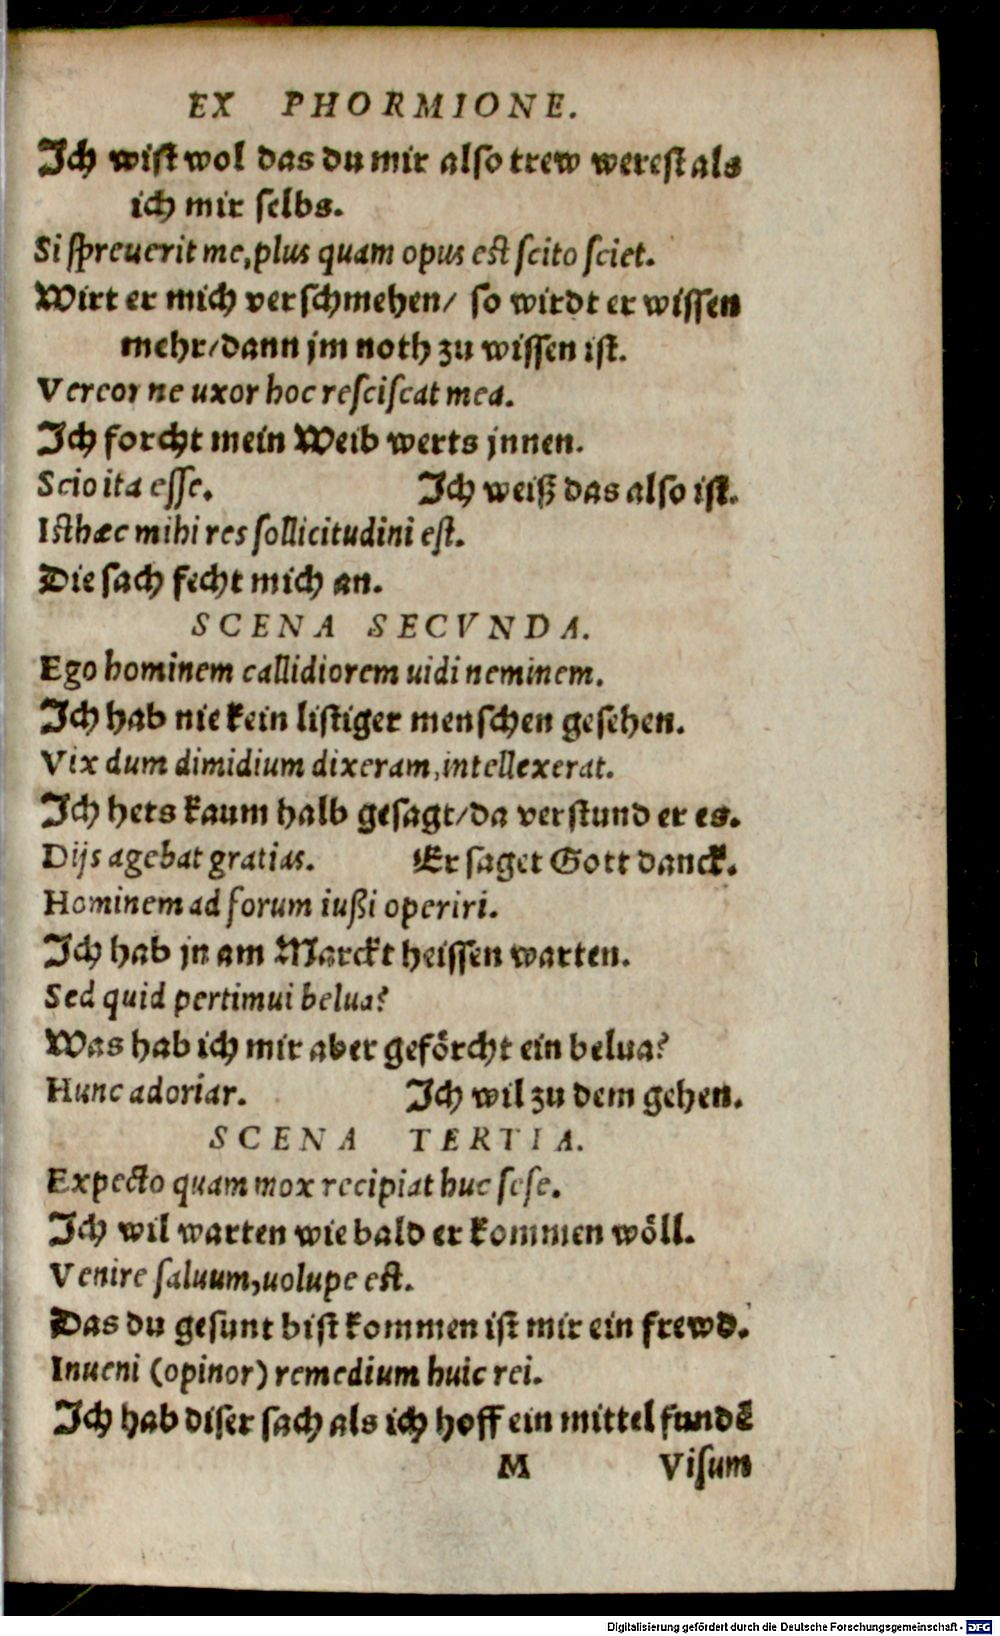 EX PHORMIONE.
Ich wist wol das du mir also trew werest als
ich mir selbs.
Si spreuerit me, plus quam opus est scito sciet.
Wirt er mich verschmehen/ so wirdt er wissen
mehr/dann jm noth zu wissen ist.
Vereor ne uxor hoc resciscat mea.
Ich forcht mein Weib werts jnnen.
Scio ita esse. Ich weiß das also ist.
Isthæc mihi res sollicitudini est.
Die sach fecht mich an.
SCENA SECVNDA.
Ego hominem callidiorem uidi neminem.
Ich hab nie kein listiger menschen gesehen.
Vix dum dimidium dixeram, intellexerat.
Ich hets kaum halb gesagt/da verstund er es.
Dijs agebat gratias. Er saget Gott danck.
Hominem ad forum iußi operiri.
Ich hab jn am Marckt heissen warten.
Sed quid pertimui belua?
Was hab ich mir aber geförcht ein belua?
Hunc adoriar. Ich wil zu dem gehen.
SCENA TERTIA.
Expecto quam mox recipiat huc sese.
Ich wil warten wie bald er kommen wöll.
Venire saluum, uolupe est.
Das du gesunt bist kommen ist mir ein frewd.
Inueni (opinor) remedium huic rei.
Ich hab diser sach als ich hoff ein mittel fundē
M Visum
Digitalisierung gefördert durch die Deutsche Forschungsgemeinschaft - DFG